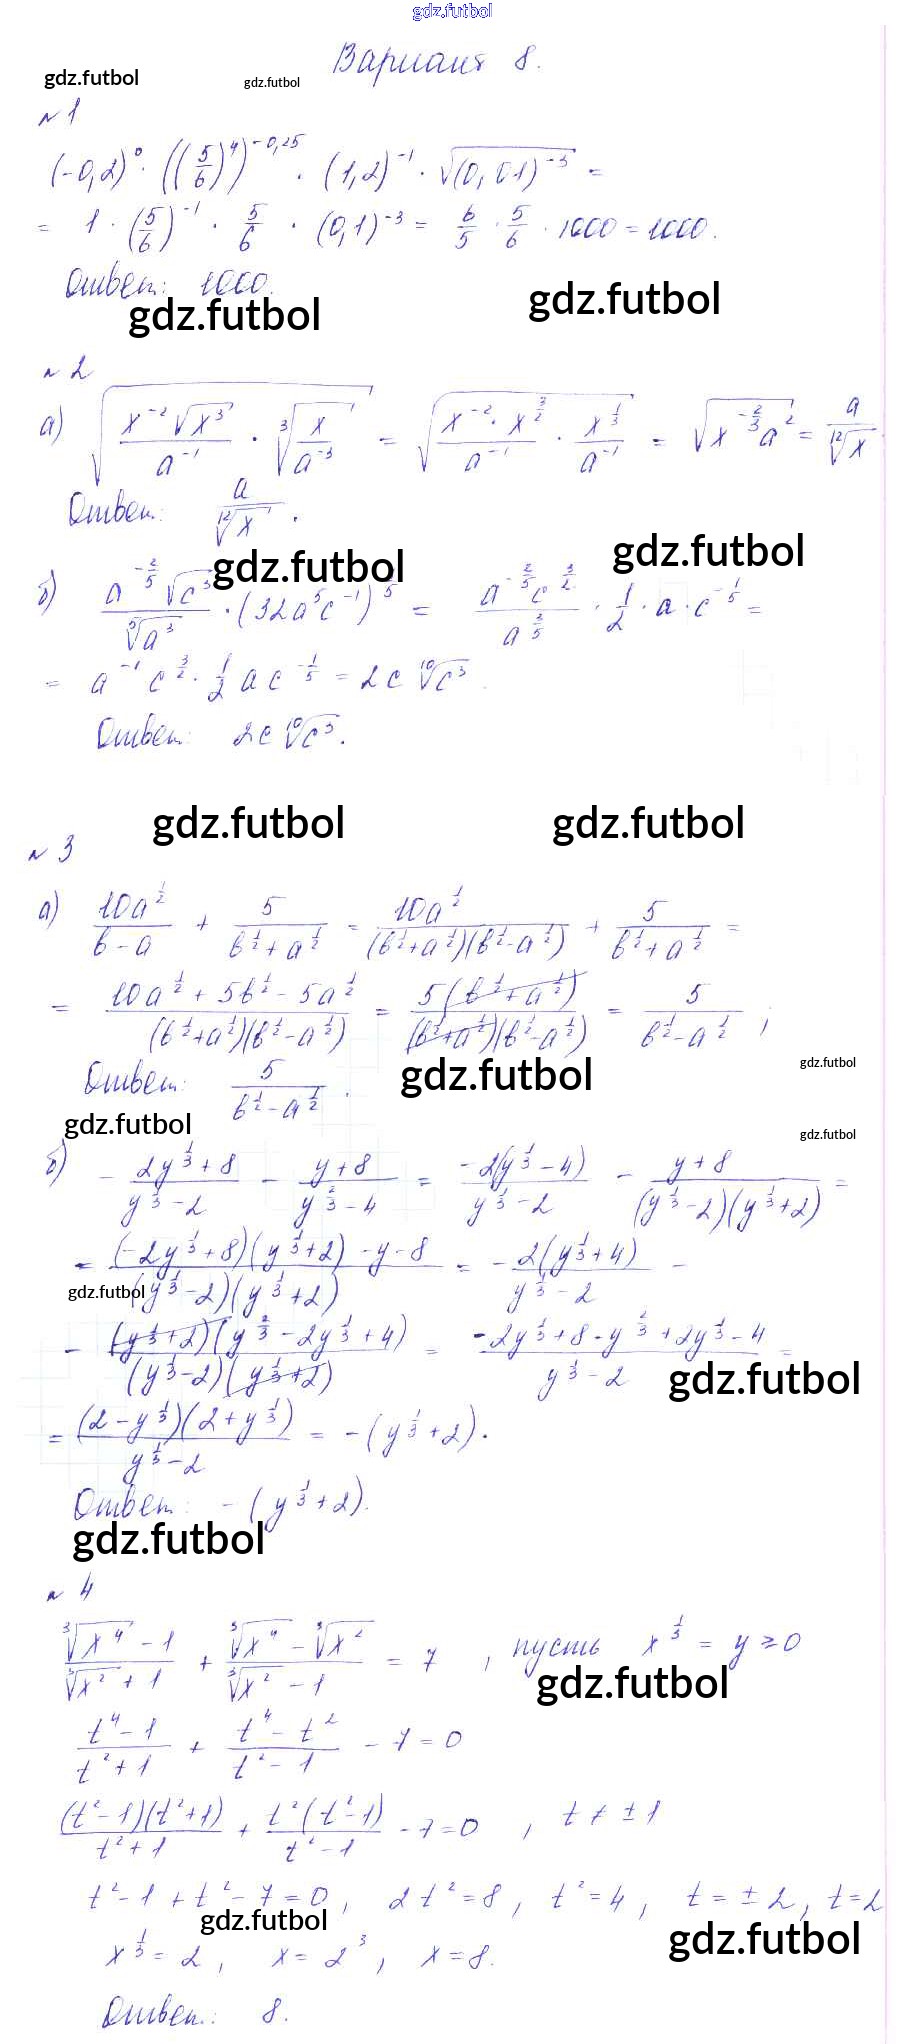 gdz.futbol
Вариант 8.
gdz.futbol gdz.futbol
№1
(-0,2)^0 · ((5/6)^4)^{-0,25} · (1,2)^{-1} · √((0,01)^{-3}) =
= 1 · (5/6)^{-1} · 5/6 · (0,1)^{-3} = 6/5 · 5/6 · 1000 = 1000.
Ответ: 1000.
gdz.futbol gdz.futbol
№2
а) √(x^{-2}√(x^3)/a^{-1} · ∛(x/a^{-3})) = √(x^{-2} · x^{3/2}/a^{-1} · x^{1/3}/a^{-1}) = √(x^{-2/3}a^2) = a/¹²√x.
Ответ: a/¹²√x.
gdz.futbol gdz.futbol
б) a^{-2/5}√(c^3)/⁵√(a^3) · (32a^5c^{-1})^{1/5} = a^{-2/5}c^{3/2}/a^{3/5} · 1/2 · a · c^{-1/5} =
= a^{-1}c^{3/2} · 1/2 a c^{-1/5} = 2c ¹⁰√(c^3).
Ответ: 2c ¹⁰√(c^3).
gdz.futbol gdz.futbol
№3
а) 10a^{1/2}/(b-a) + 5/(b^{1/2}+a^{1/2}) = 10a^{1/2}/((b^{1/2}+a^{1/2})(b^{1/2}-a^{1/2})) + 5/(b^{1/2}+a^{1/2}) =
= (10a^{1/2}+5b^{1/2}-5a^{1/2})/((b^{1/2}+a^{1/2})(b^{1/2}-a^{1/2})) = 5(b^{1/2}+a^{1/2})/((b^{1/2}+a^{1/2})(b^{1/2}-a^{1/2})) = 5/(b^{1/2}-a^{1/2});
Ответ: 5/(b^{1/2}-a^{1/2}).
gdz.futbol gdz.futbol
gdz.futbol gdz.futbol
б) - (2y^{1/3}+8)/(y^{1/3}-2) - (y+8)/(y^{2/3}-4) = -2(y^{1/3}-4)/(y^{1/3}-2) - (y+8)/((y^{1/3}-2)(y^{1/3}+2)) =
= ((-2y^{1/3}+8)(y^{1/3}+2)-y-8)/((y^{1/3}-2)(y^{1/3}+2)) = - 2(y^{1/3}+4)/(y^{1/3}-2) -
gdz.futbol
- (y^{1/3}+2)(y^{2/3}-2y^{1/3}+4)/((y^{1/3}-2)(y^{1/3}+2)) = (-2y^{1/3}+8-y^{2/3}+2y^{1/3}-4)/(y^{1/3}-2) =
gdz.futbol
= (2-y^{1/3})(2+y^{1/3})/(y^{1/3}-2) = -(y^{1/3}+2).
Ответ: -(y^{1/3}+2).
gdz.futbol
№4
(∛(x^4)-1)/(∛(x^2)+1) + (∛(x^4)-∛(x^2))/(∛(x^2)-1) = 7, пусть x^{1/3} = y ≥ 0
gdz.futbol
(t^4-1)/(t^2+1) + (t^4-t^2)/(t^2-1) - 7 = 0
(t^2-1)(t^2+1)/(t^2+1) + t^2(t^2-1)/(t^2-1) - 7 = 0, t ≠ ±1
t^2-1+t^2-7=0, 2t^2=8, t^2=4, t=±2, t=2
gdz.futbol gdz.futbol
x^{1/3}=2, x=2^3, x=8.
Ответ: 8.